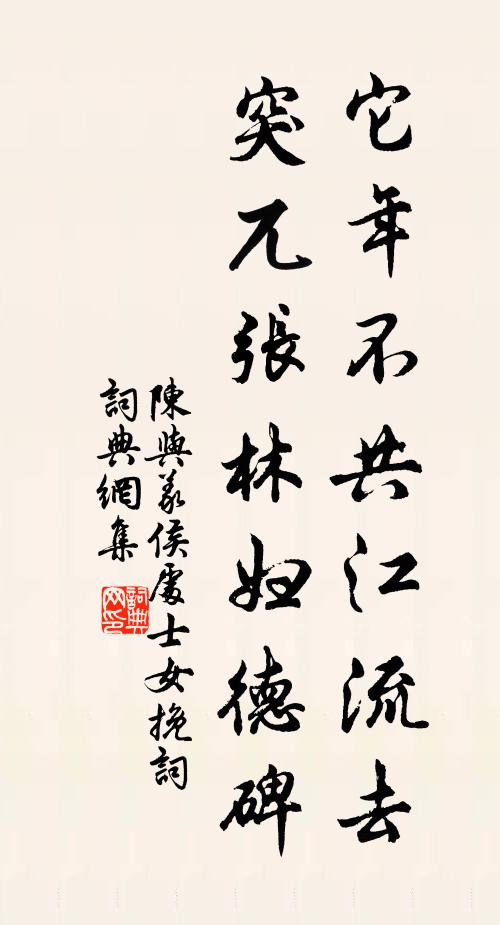 它年不共江流去
突兀張林妇德碑
陳與義侯處士女挽詞
詞典網集
詞典网印